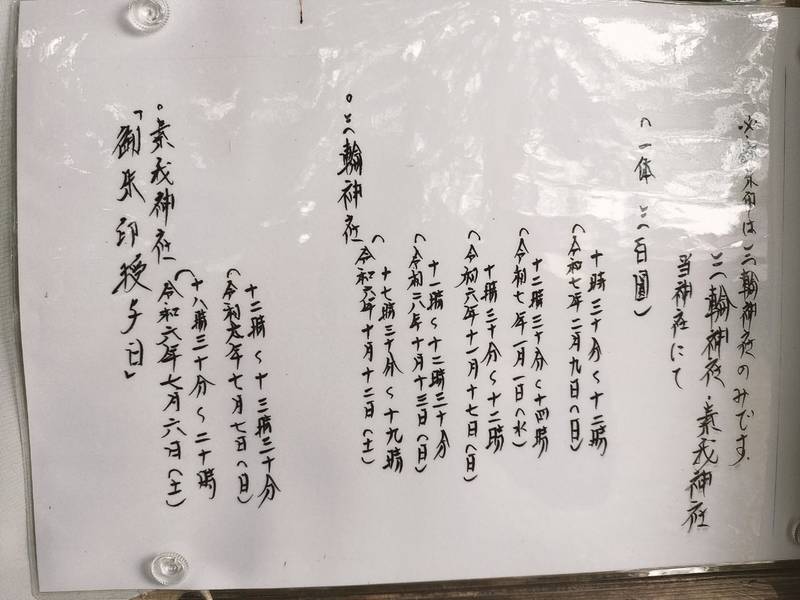 「御朱印授与日」
。素我神社
(令和六年七月六日(土)
十八時三十分〜二十時
(令和六年七月七日(日)
十二時〜十三時三十分
。三輪神社
(令和六年十月十二日(土)
十七時三十分〜十九時
(令和六年十月十三日(日)
十一時〜十二時三十分
(令和六年十一月十七日(日)
十時三十分〜十二時
(令和七年一月一日(水)
十二時三十分〜十四時
(令和七年二月九日(日)
十時三十分〜十二時
(一体 三百圓)
当神社にて
三輪神社・素我神社
御朱印は三輪神社のみです.